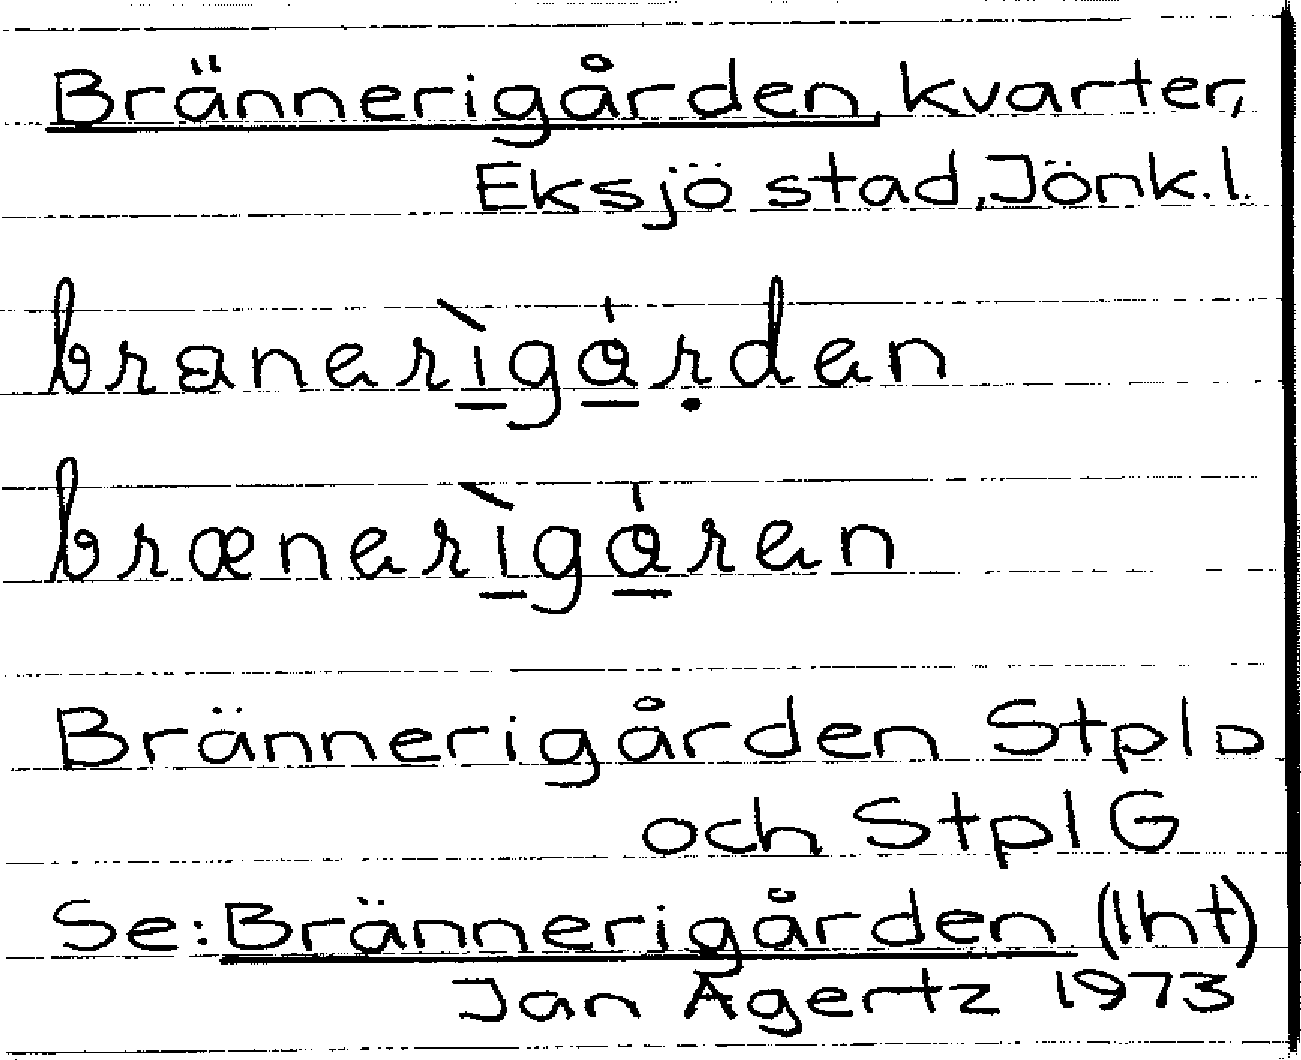 Brännerigården kvarter,
Eksjö stad, Jönk. l.
branerìgårdan
brænerìgåran
Brännerigården Stpl D
och Stpl G
Se: Brännerigården (lht)
Jan Agertz 1973